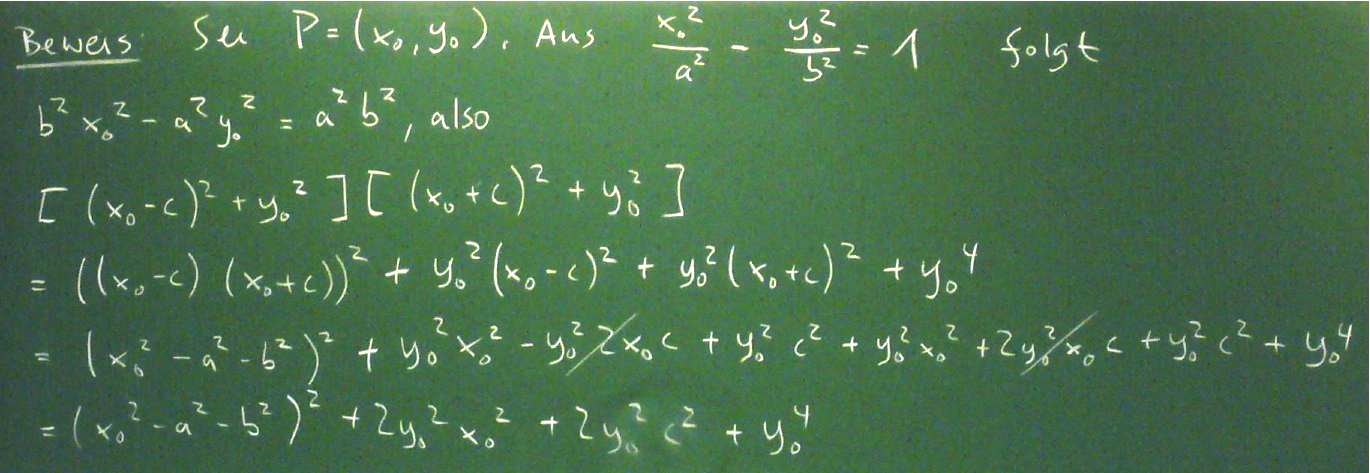 Beweis: Sei P = (x₀, y₀). Aus x₀²/a² - y₀²/b² = 1 folgt
b² x₀² - a² y₀² = a² b², also
[ (x₀ - c)² + y₀² ] [ (x₀ + c)² + y₀² ]
= ((x₀ - c) (x₀ + c))² + y₀² (x₀ - c)² + y₀² (x₀ + c)² + y₀⁴
= (x₀² - a² - b²)² + y₀² x₀² - y₀² 2 x₀ c + y₀² c² + y₀² x₀² + 2 y₀² x₀ c + y₀² c² + y₀⁴
= (x₀² - a² - b²)² + 2 y₀² x₀² + 2 y₀² c² + y₀⁴